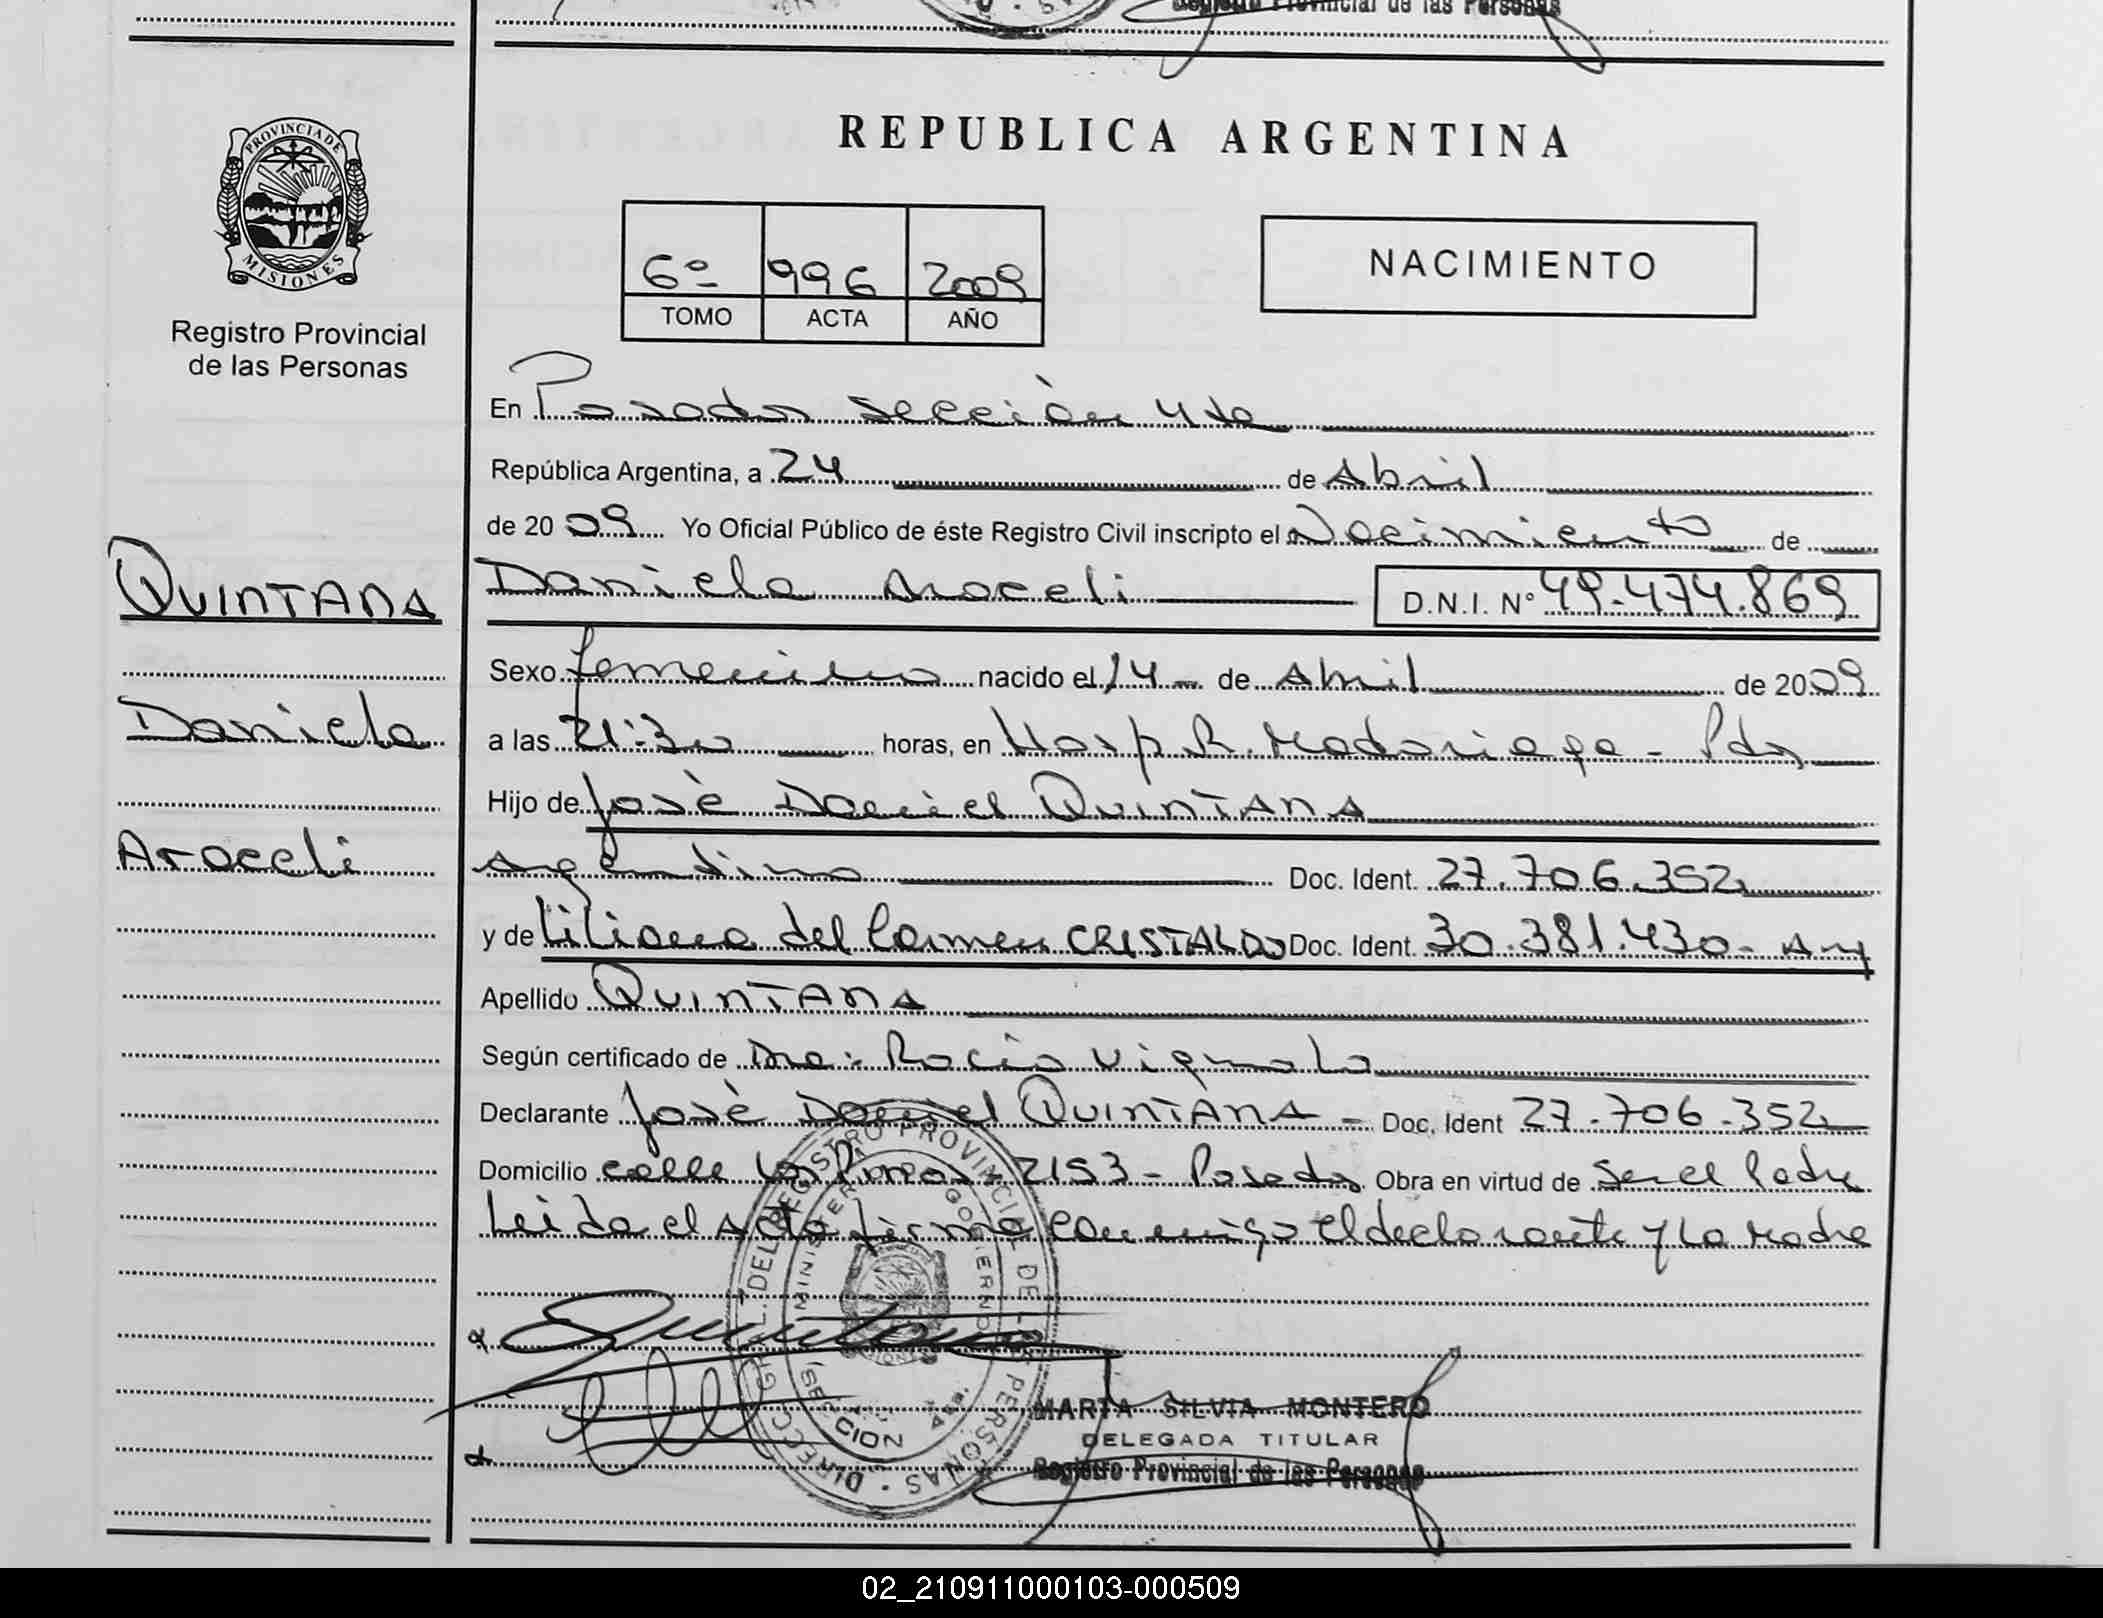 Registro Provincial de las Personas
PROVINCIA DE
MISIONES
Registro Provincial
de las Personas
QUINTANA
Daniela
Araceli
REPUBLICA ARGENTINA
6º 996 2009
TOMO ACTA AÑO
NACIMIENTO
En Posadas sección 4ta
República Argentina, a 24 de Abril
de 2009 Yo Oficial Público de éste Registro Civil inscripto el Nacimiento de
Daniela Araceli D.N.I. Nº 49.474.869
Sexo femenino nacido el 14 - de Abril de 2009
a las 21:30 horas, en Hosp. R. Madariaga - Pdas
Hijo de José Daniel QUINTANA
argentino Doc. Ident. 27.706.352
y de Liliana del Carmen CRISTALDO Doc. Ident. 30.381.430 - A-y
Apellido QUINTANA
Según certificado de Dra. Rocío Vignola
Declarante José Daniel QUINTANA - Doc. Ident 27.706.352
Domicilio calle 2153 - Posadas Obra en virtud de ser el Padre
Leida el Acta firma conmigo el declarante y La Madre
DIRECC. GRAL. DEL REGISTRO PROVINCIAL DE LAS PERSONAS
MINISTERIO GOBIERNO
SECCION
Quintana
MARTA SILVIA MONTERO
DELEGADA TITULAR
Registro Provincial de las Personas
02_210911000103-000509